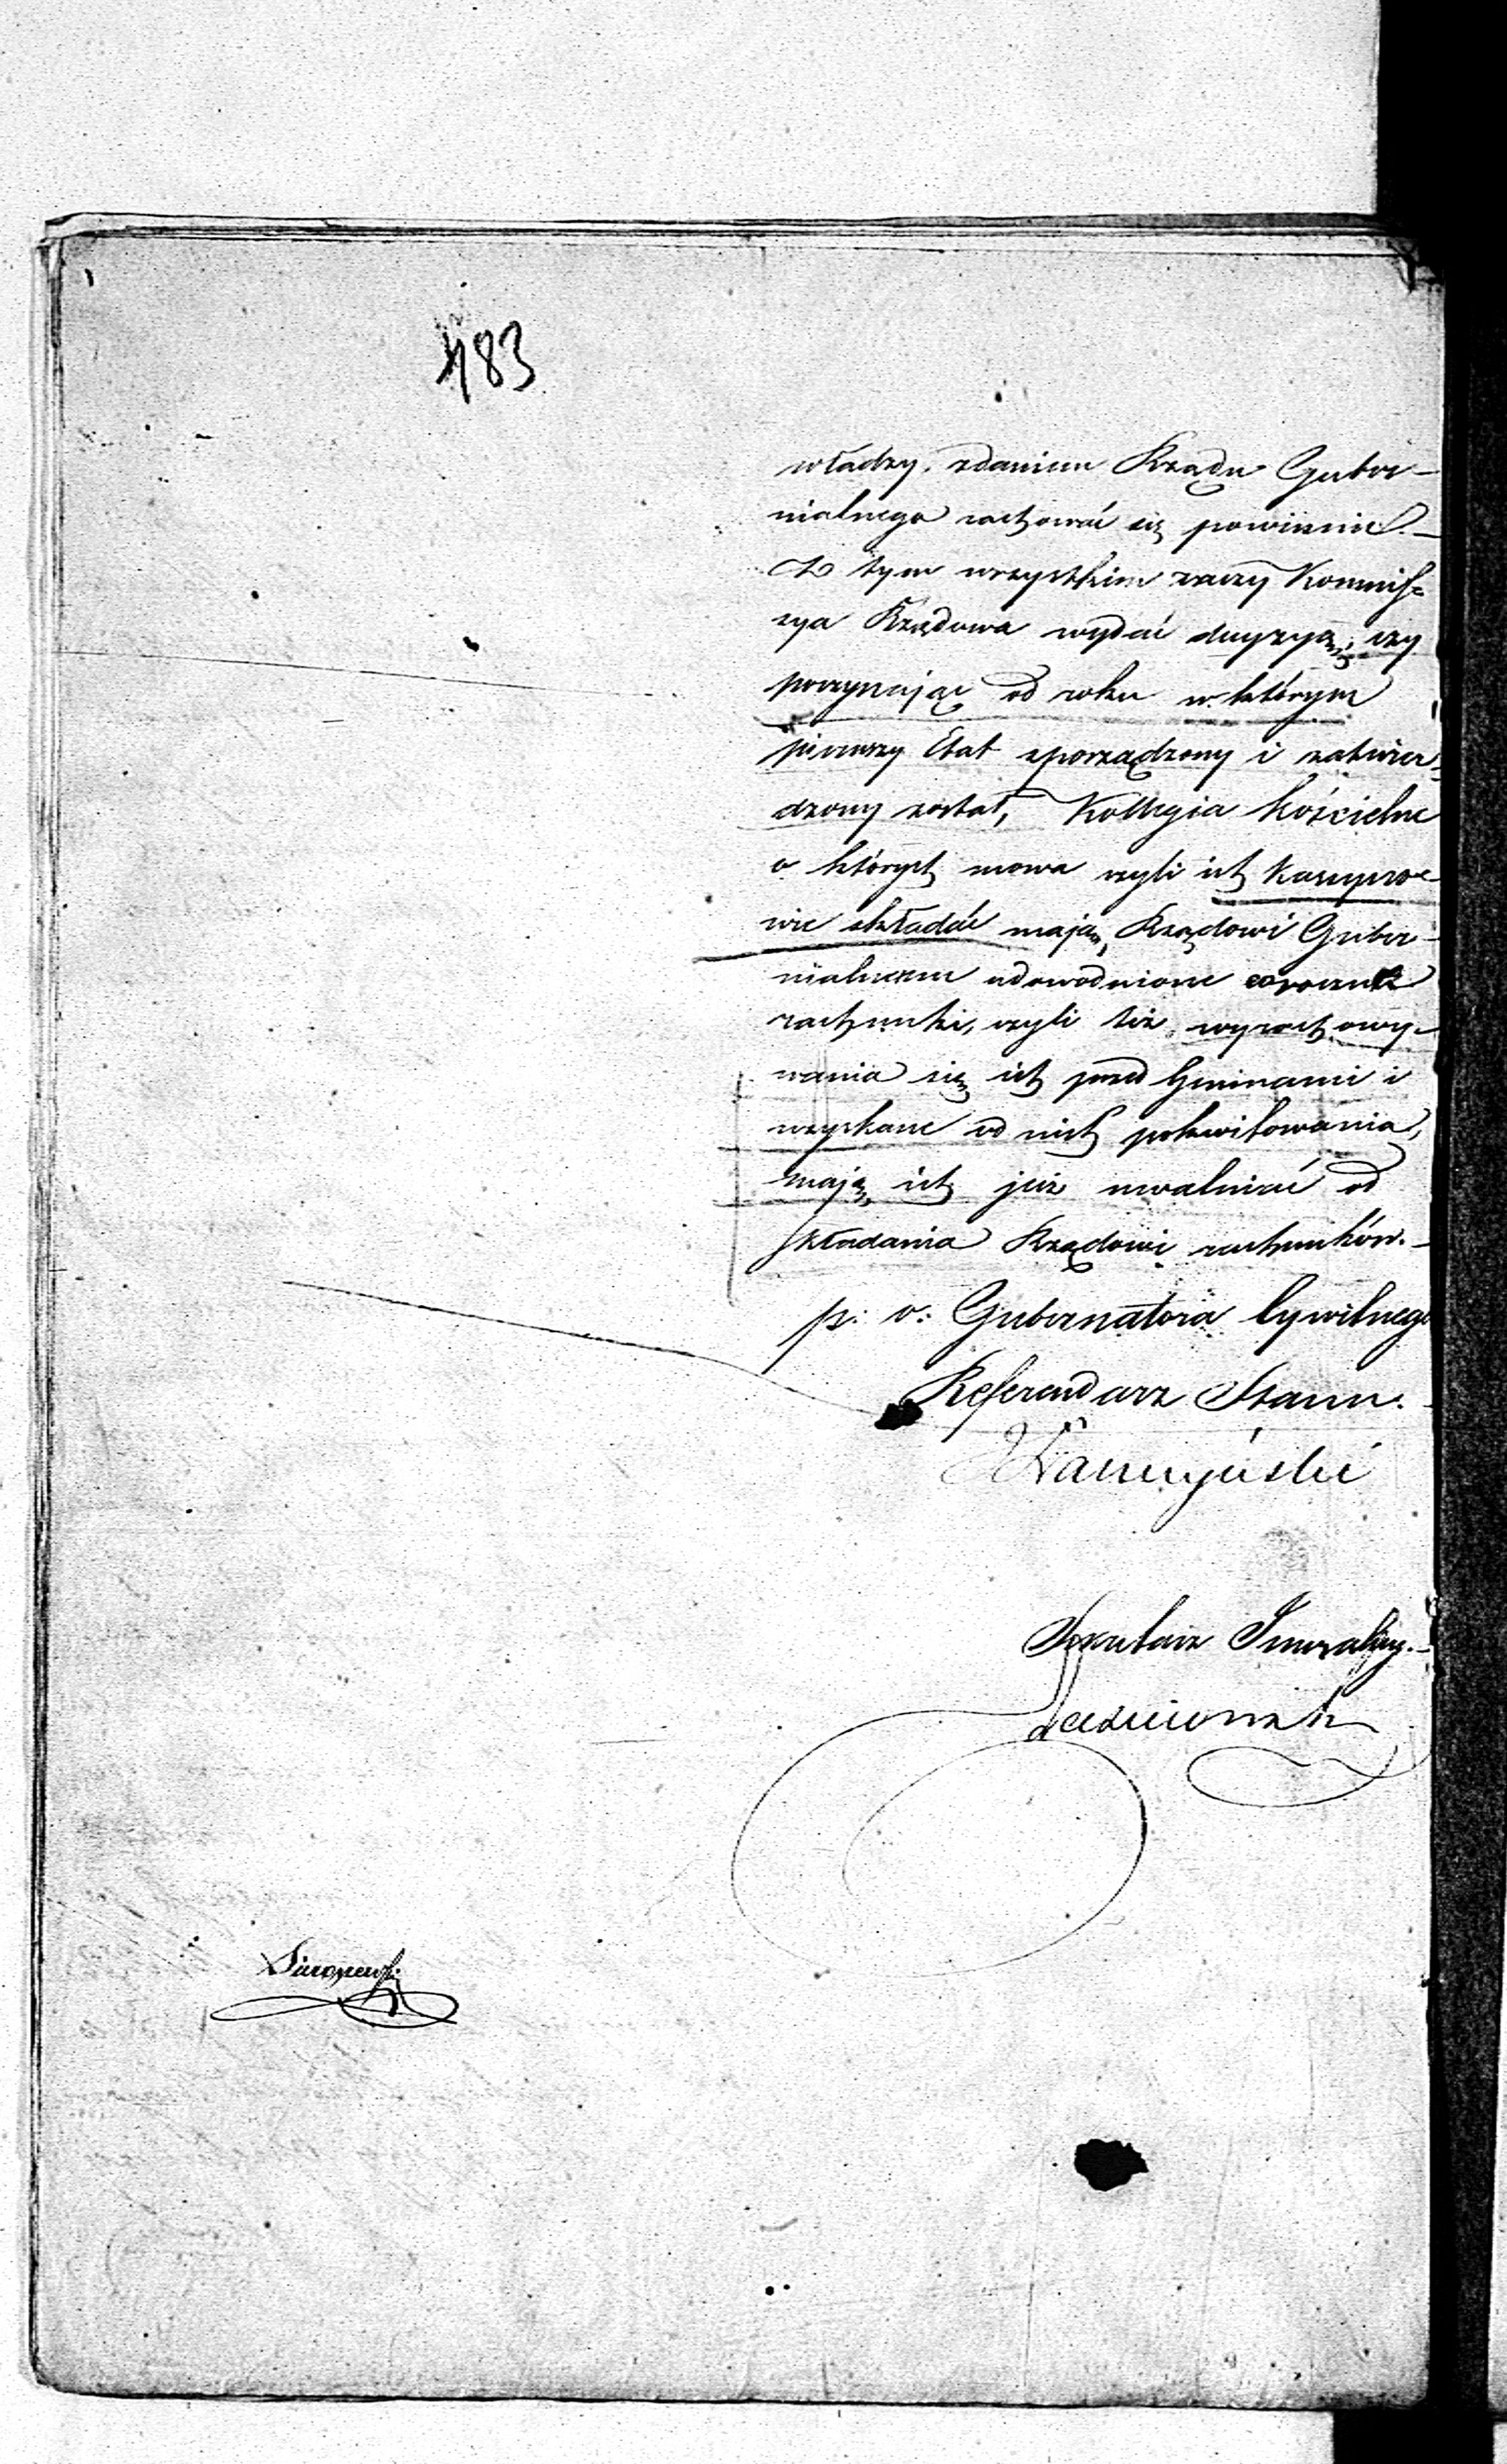 183
władzy, zdaniem Rządu Guber-
nialnego rachować się powinnie.-
W tym wszystkim raczy Kommis-
sya Rządowa wydać decyzyą, czy
poczynając od roku w którym
pierwszy Etat sporządzony i zatwier-
dzony został, Kollegia kościelne
o których mowa czyli ich kassyero-
wie składać mają, Rządowi Guber-
nialnemu udowodnione coroczne
rachunki, czyli też wyrachowy-
wania się ich przed Gminami i
uzyskane od nich pokwitowania,
mają ich już uwalniać od
składania Rządowi rachunków.-
p: o: Gubernatora Cywilnego
Referendarz Stanu.
Sekretarz Jeneralny.-